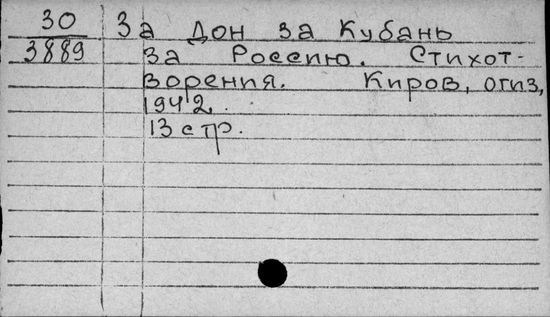 30 За Дон за Кубань
3889 за Россию. Стихот-
ворения. Киров, огиз,
1942.
13 стр.